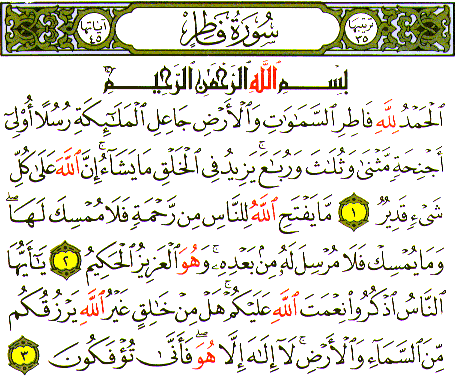 ترتيبها ٣٥ سُورَةُ فَاطِرٍ آياتها ٤٥
بِسْمِ اللَّهِ الرَّحْمَٰنِ الرَّحِيمِ
ٱلْحَمْدُ لِلَّهِ فَاطِرِ ٱلسَّمَٰوَٰتِ وَٱلْأَرْضِ جَاعِلِ ٱلْمَلَٰٓئِكَةِ رُسُلًا أُو۟لِىٓ
أَجْنِحَةٍ مَّثْنَىٰ وَثُلَٰثَ وَرُبَٰعَ ۚ يَزِيدُ فِى ٱلْخَلْقِ مَا يَشَآءُ ۚ إِنَّ ٱللَّهَ عَلَىٰ كُلِّ
شَىْءٍ قَدِيرٌ ١ مَّا يَفْتَحِ ٱللَّهُ لِلنَّاسِ مِن رَّحْمَةٍ فَلَا مُمْسِكَ لَهَا ۖ
وَمَا يُمْسِكْ فَلَا مُرْسِلَ لَهُۥ مِنۢ بَعْدِهِۦ ۚ وَهُوَ ٱلْعَزِيزُ ٱلْحَكِيمُ ٢ يَٰٓأَيُّهَا
ٱلنَّاسُ ٱذْكُرُوا۟ نِعْمَتَ ٱللَّهِ عَلَيْكُمْ ۚ هَلْ مِنْ خَٰلِقٍ غَيْرُ ٱللَّهِ يَرْزُقُكُم
مِّنَ ٱلسَّمَآءِ وَٱلْأَرْضِ ۚ لَآ إِلَٰهَ إِلَّا هُوَ ۖ فَأَنَّىٰ تُؤْفَكُونَ ٣